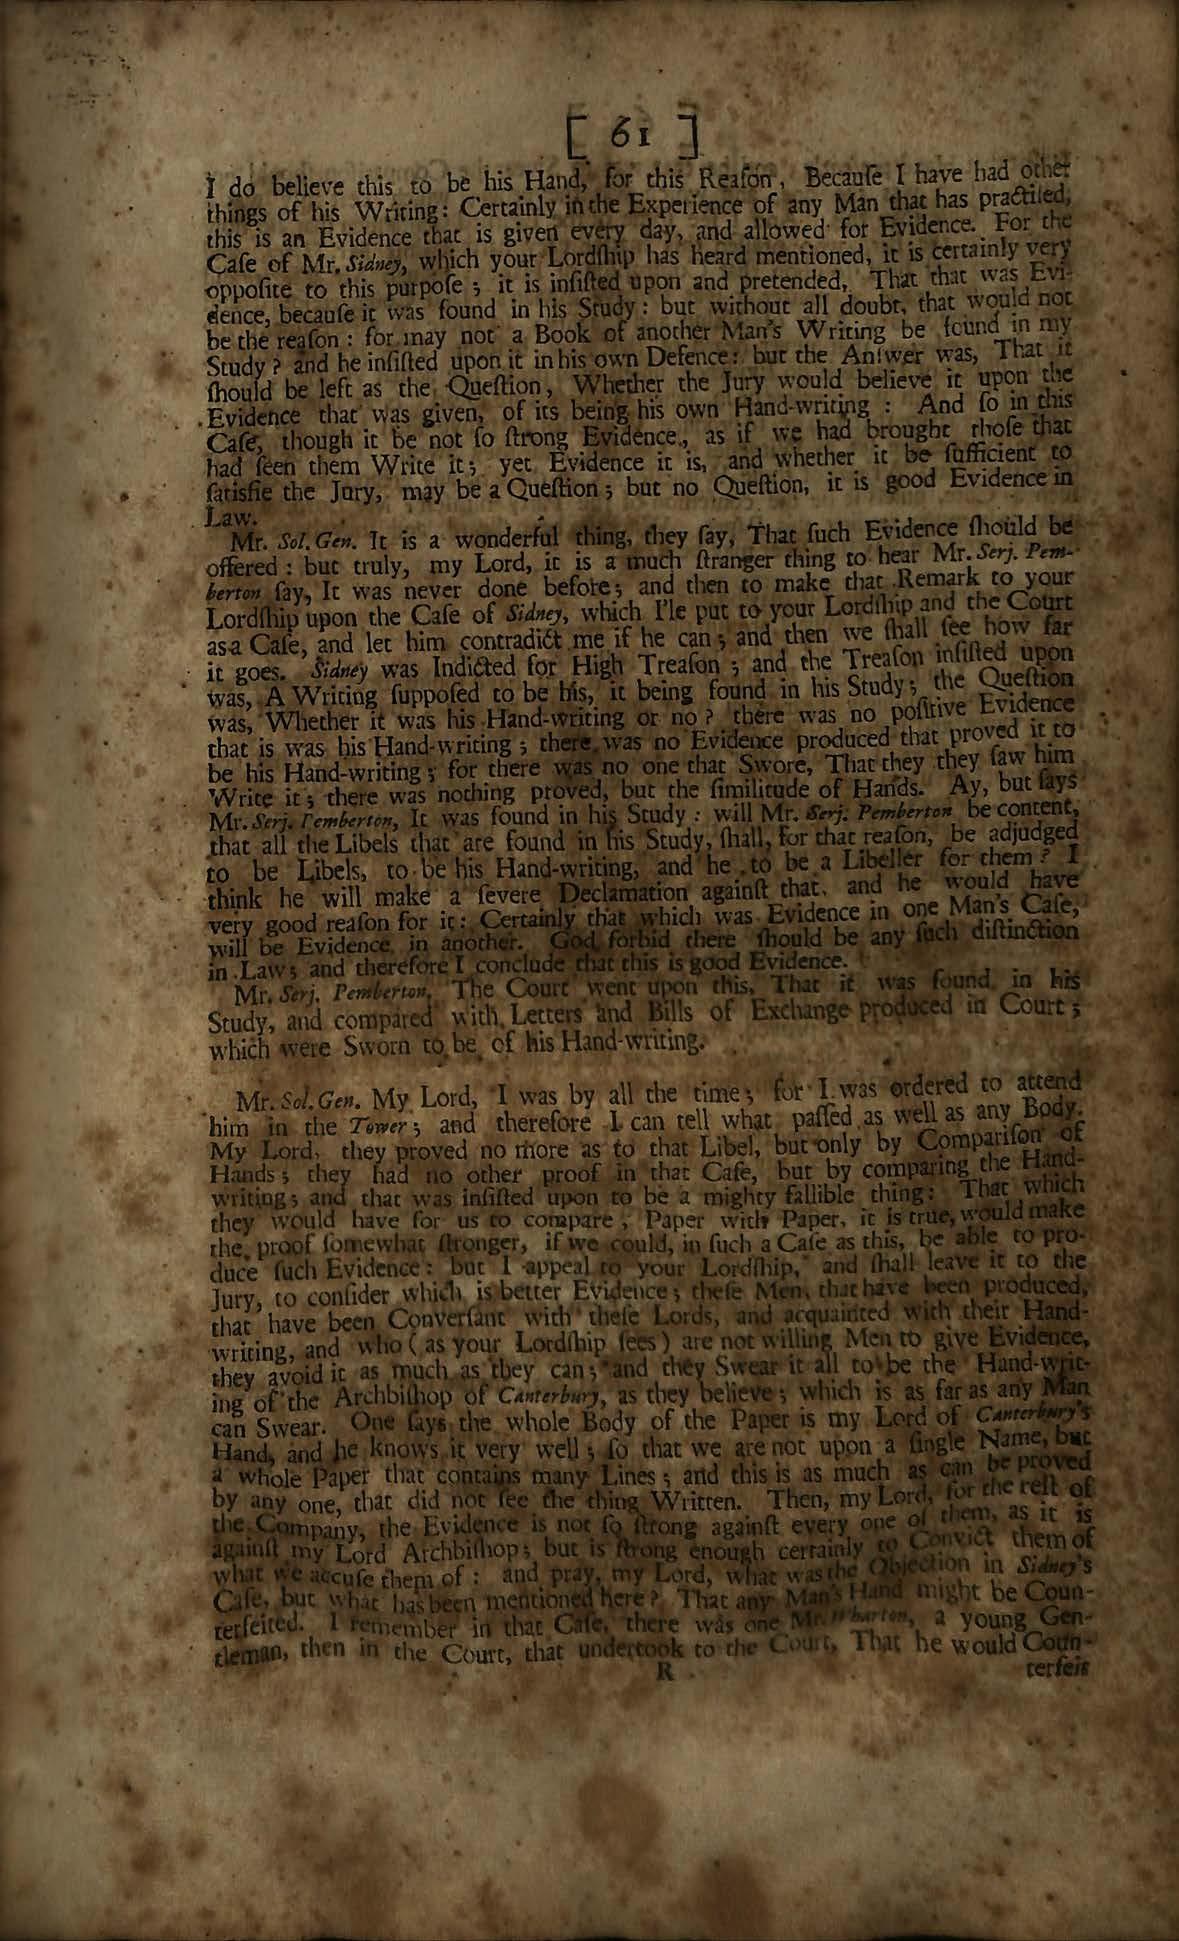 [ 61 ]
I do believe this to be his Hand, for this Reaſon, Becauſe I have had other
things of his Writing: Certainly in the Experience of any Man that has practiſed,
this is an Evidence that is given every day, and allowed for Evidence. For the
Caſe of Mr. Sidney, which your Lordſhip has heard mentioned, it is certainly very
oppoſite to this purpoſe; it is inſiſted upon and pretended, That that was Evi-
dence, becauſe it was found in his Study: but without all doubt, that would not
be the reaſon: for may not a Book of another Man's Writing be found in my
Study? and he inſiſted upon it in his own Defence: but the Anſwer was, That it
ſhould be left as the Queſtion, Whether the Jury would believe it upon the
Evidence that was given, of its being his own Hand-writing: And ſo in this
Caſe, though it be not ſo ſtrong Evidence, as if we had brought thoſe that
had ſeen them Write it; yet Evidence it is, and whether it be ſufficient to
ſatisfie the Jury, may be a Queſtion; but no Queſtion, it is good Evidence in
Law.
Mr. Sol. Gen. It is a wonderful thing, they ſay, That ſuch Evidence ſhould be
offered: but truly, my Lord, it is a much ſtranger thing to hear Mr. Serj. Pem-
berton ſay, It was never done before; and then to make that Remark to your
Lordſhip upon the Caſe of Sidney, which I'le put to your Lordſhip and the Court
as a Caſe, and let him contradict me if he can; and then we ſhall ſee how far
it goes. Sidney was Indicted for High Treaſon; and the Treaſon inſiſted upon
was, A Writing ſuppoſed to be his, it being found in his Study; the Queſtion
was, Whether it was his Hand-writing or no? there was no poſitive Evidence
that is was his Hand-writing; there was no Evidence produced that proved it to
be his Hand-writing; for there was no one that Swore, That they they ſaw him
Write it; there was nothing proved, but the ſimilitude of Hands. Ay, but ſays
Mr. Serj. Pemberton, It was found in his Study: will Mr. Serj. Pemberton be content,
that all the Libels that are found in his Study, ſhall, for that reaſon, be adjudged
to be Libels, to be his Hand-writing, and he to be a Libeller for them? I
think he will make a ſevere Declamation againſt that, and he would have
very good reaſon for it: Certainly that which was Evidence in one Man's Caſe,
will be Evidence in another. God forbid there ſhould be any ſuch diſtinction
in Law; and therefore I conclude that this is good Evidence.
Mr. Serj. Pemberton. The Court went upon this, That it was found in his
Study, and compared with Letters and Bills of Exchange produced in Court;
which were Sworn to be of his Hand-writing.
Mr. Sol. Gen. My Lord, I was by all the time; for I was ordered to attend
him in the Tower; and therefore I can tell what paſſed as well as any Body.
My Lord, they proved no more as to that Libel, but only by Compariſon of
Hands; they had no other proof in that Caſe, but by comparing the Hand-
writing; and that was inſiſted upon to be a mighty fallible thing: That which
they would have for us to compare, Paper with Paper, it is true, would make
the proof ſomewhat ſtronger, if we could, in ſuch a Caſe as this, be able to pro-
duce ſuch Evidence: but I appeal to your Lordſhip, and ſhall leave it to the
Jury, to conſider which is better Evidence; theſe Men, that have been produced,
that have been Converſant with theſe Lords, and acquainted with their Hand-
writing, and who (as your Lordſhip ſees) are not willing Men to give Evidence,
they avoid it as much as they can; and they Swear it all to be the Hand-writ-
ing of the Archbiſhop of Canterbury, as they believe; which is as far as any Man
can Swear. One ſays the whole Body of the Paper is my Lord of Canterbury's
Hand, and he knows it very well; ſo that we are not upon a ſingle Name, but
a whole Paper that contains many Lines; and this is as much as can be proved
by any one, that did not ſee the thing Written. Then, my Lord, for the reſt of
the Company, the Evidence is not ſo ſtrong againſt every one of them, as it is
againſt my Lord Archbiſhop; but is ſtrong enough certainly to Convict them of
what we accuſe them of: and pray, my Lord, what was the Objection in Sidney's
Caſe, but what has been mentioned here? That any Man's Hand might be Coun-
terfeited. I remember in that Caſe, there was one Mr. Wharton, a young Gen-
tleman, then in the Court, that undertook to the Court, That he would Coun-
R
terfeit